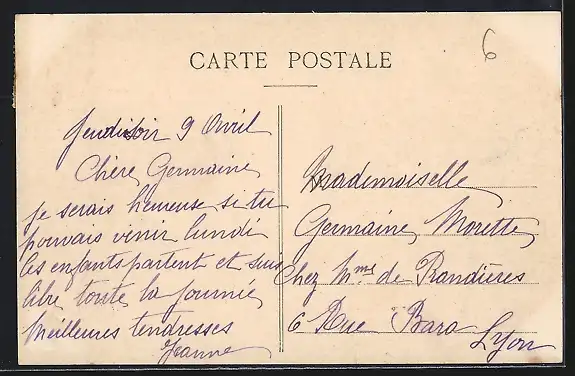 6
CARTE POSTALE
Jeudi soir 9 Avril
Chère Germaine
je serais heureuse si tu
pouvais venir lundi
les enfants partent et suis
libre toute la journée
Meilleures tendresses
Jeanne
Mademoiselle
Germaine Morette
Chez Mme de Randières
6 Rue Bara
Lyon